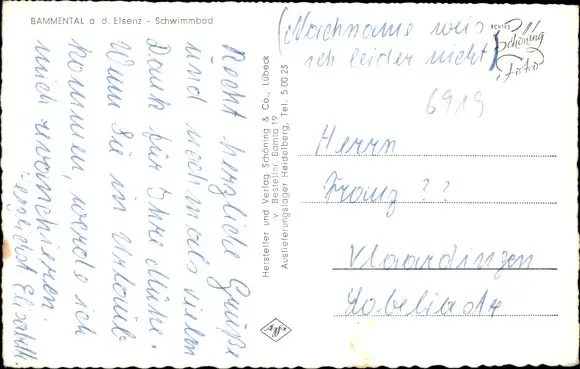 BAMMENTAL a. d. Elsenz - Schwimmbad
Recht herzliche Grüße
und nochmals vielen
Dank für Ihre Mühe.
Wenn Sie in Urlaub
kommen, werde ich
mich revanchieren.
Herzlichst Elisabeth
Hersteller und Verlag Schöning & Co., Lübeck
v Bestellnr. Bamta 19
Auslieferungslager Heidelberg, Tel. 5 00 23
ECHTES
Schöning
Foto
(Nachname weis
ich leider nicht)
6919
Herrn
Franz ??
Vlaardingen
Lobeliastr
Agfa